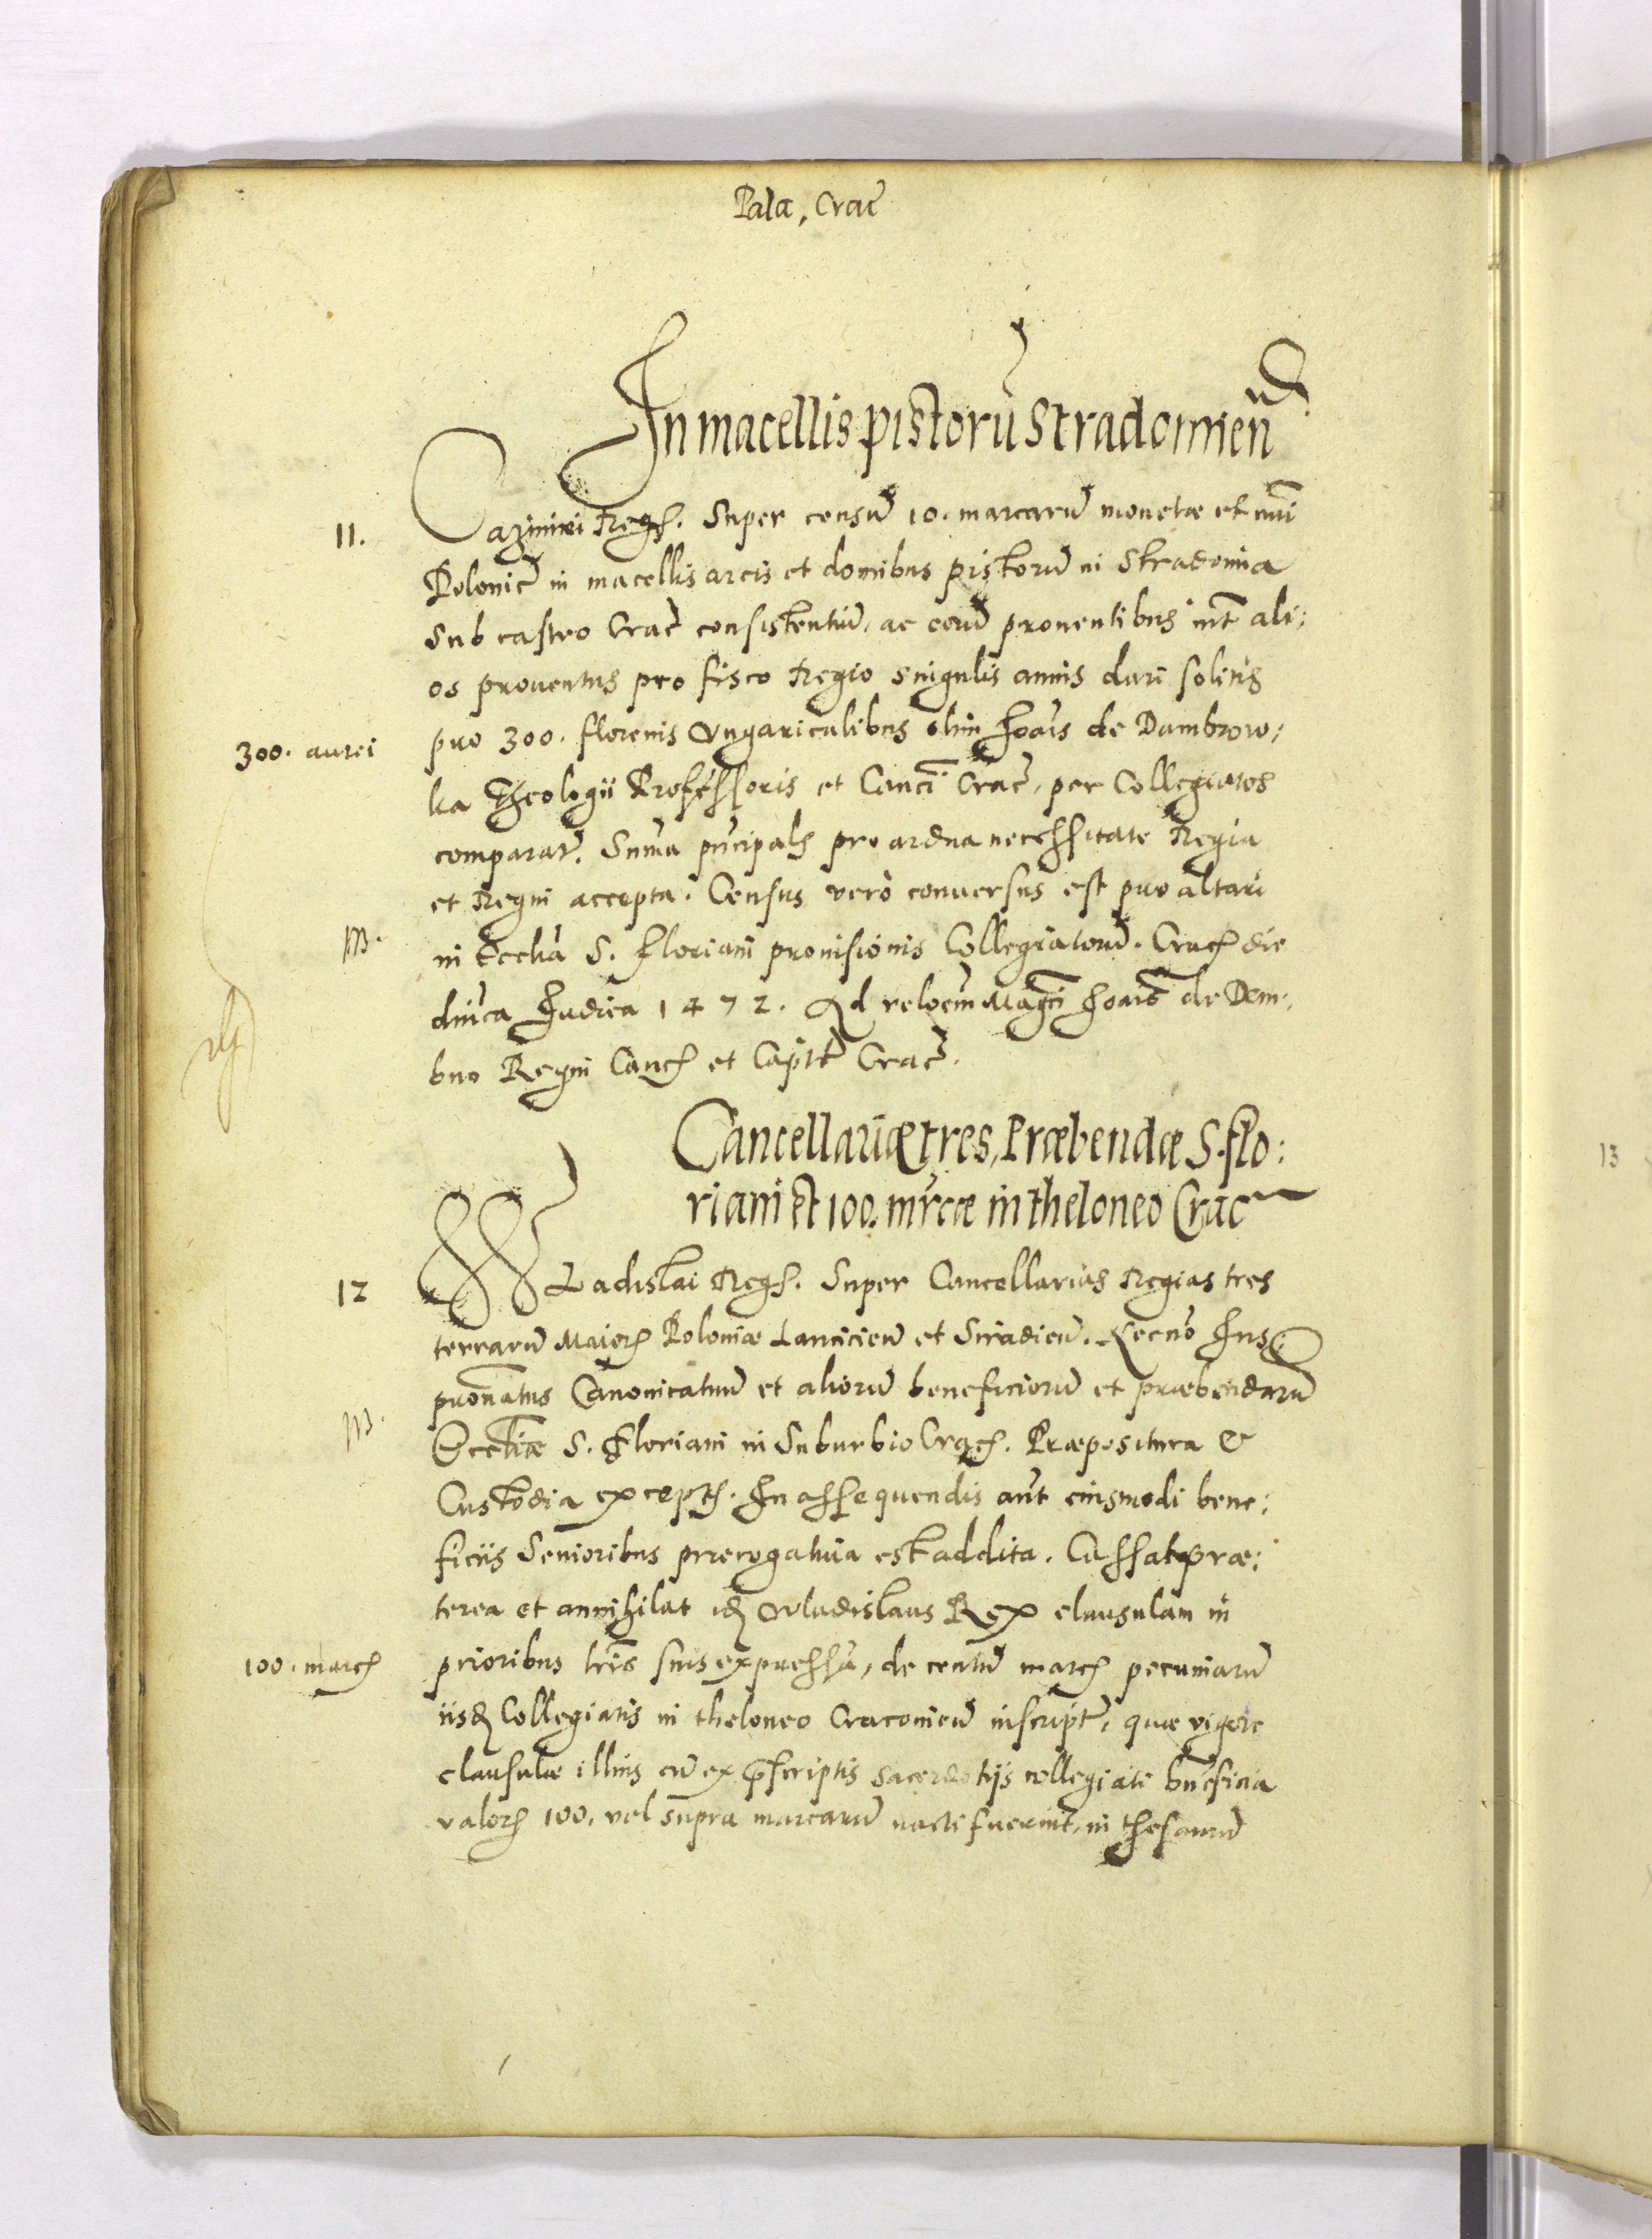 Pala, Crac̃
In macellis pistorũ Stradomień
11.
Cazimiri Regꝭ. Super censũ 10. marcarũ monetæ et nũi
Polonic̃ in macellis arcis et domibus pistorũ in Stradomia
Sub castro Crac̃ consistentiũ, ac eorũ prouentibus int̃ ali:
os prouentus pro fisco Regio singulis annis dari solitis
300. aurei
pro 300. florenis Vngaricalibus olim Joãis de Dambrow:
ka Theologii Professoris et Canci Crac̃, per Collegiatos
comparat̃. Suma pñcipalꝭ pro ardua necessitate Regia
et Regni accepta. Census verò conuersus est pro altari
M.
in Ecclia S. Floriani prouisionis Collegiatorũ. Cracꝭ die
dnica Judica 1472. Ad reloem Magci Joañis de Dem:
bno Regni Cancꝭ et Capit̃ Crac̃.
Cancellariæ tres, Præbendæ S. Flo:
riani et 100. mrcæ in theloneo Crac
12
WLadislai Regꝭ. Super Cancellarias Regias tres
terrarũ Maiorꝭ Poloniæ Lancicieñ et Siradieñ. Necnõ Jus
pronatus Canonicatuũ et aliorũ beneficiorũ et præbendarũ
M.
Eccliæ S. Floriani in Suburbio Cracꝭ. Præpositura &
Custodia exceptꝭ. In assequendis aut eiusmodi bene:
ficiis Senioribus prærogatiua est addita. Cassat præ:
terea et annihilat idꝭ Wladislaus Rex clausulam in
100. marcꝭ
prioribus lris suis expressã, de centũ marcꝭ pecuniarũ
iisdꝭ Collegiatis in theloneo Cracouieñ inscript̃, quæ vigore
clausulæ illius cũ ex p̃scriptis sacerdotijs collegiati bñeficia
valorꝭ 100. vel supra marcarũ nacti fuerint, in thesaurũ
13